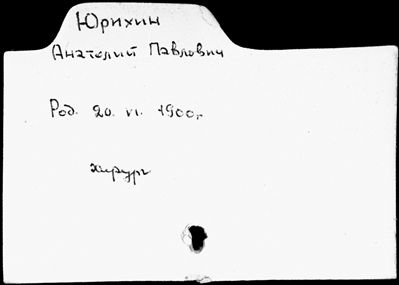 Юрихин
Анатолий Павлович
Род. 20. VI. 1900г.
хирург